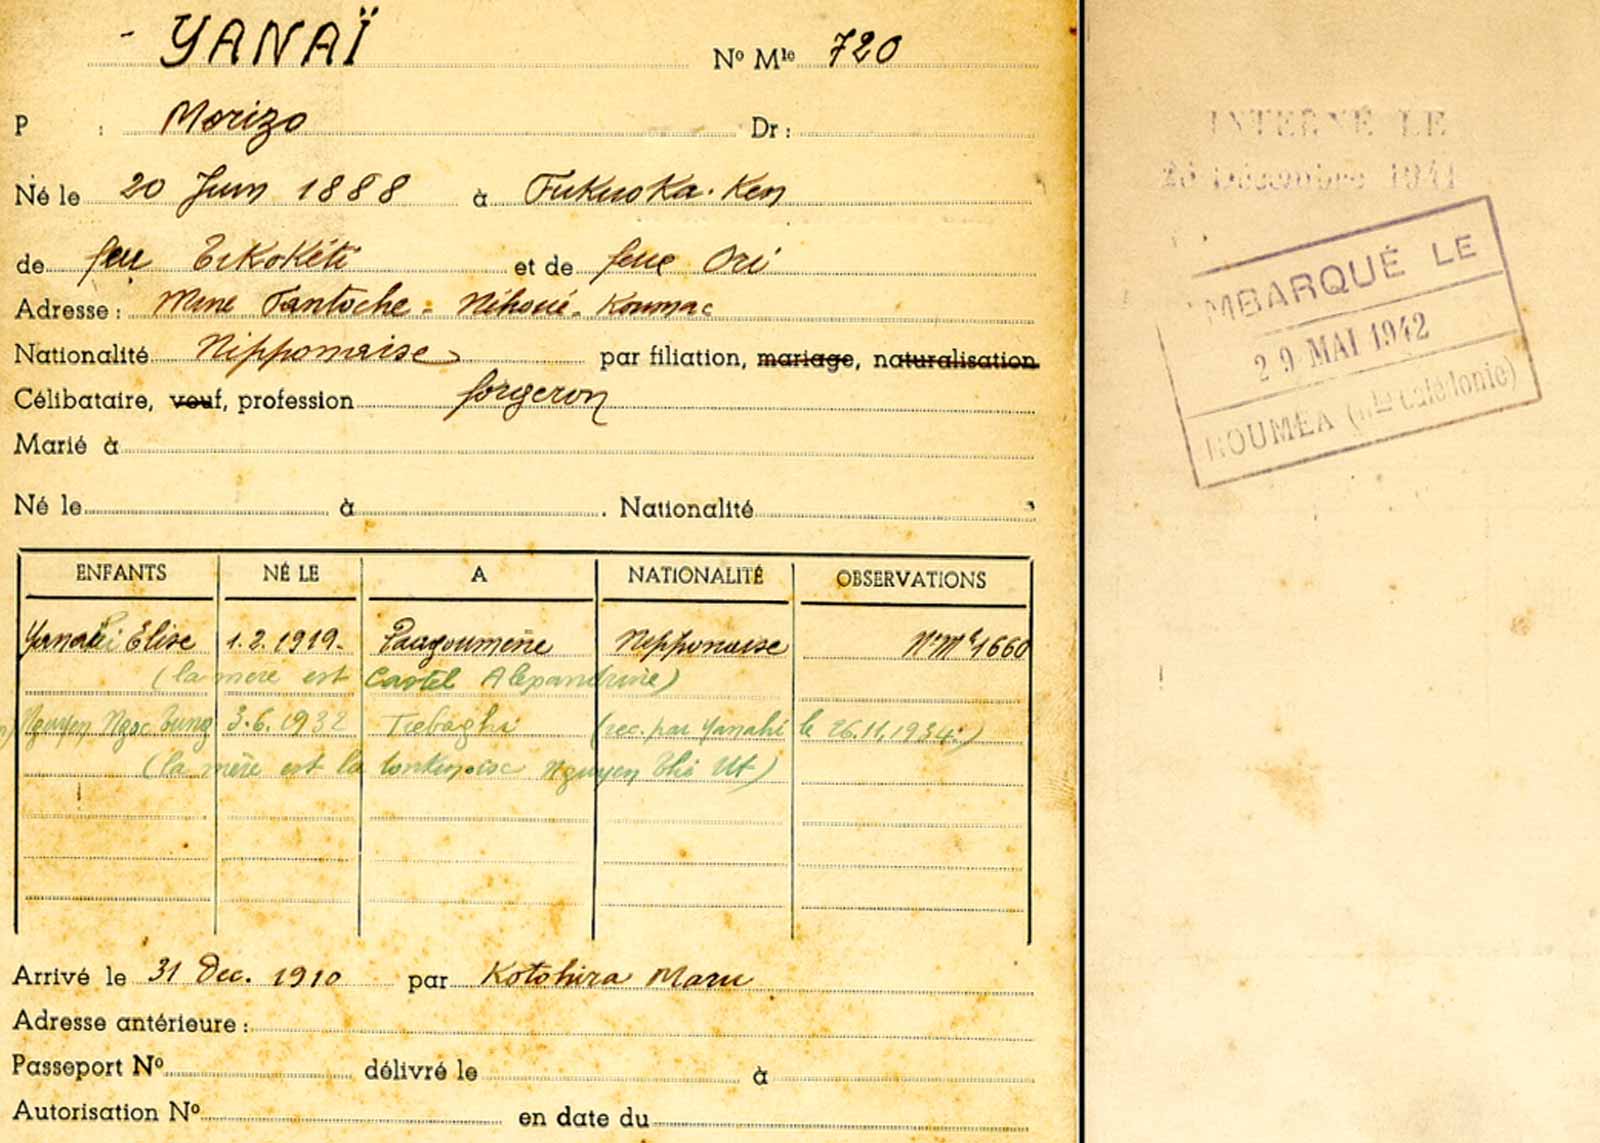 - YANAÏ Nº Mle 720
P : Morizo Dr :
Né le 20 Juin 1888 à Fukuoka-Ken
de feu et de feue Ori
Adresse : Mine Fantoche - Néhoué - Koumac
Nationalité Nipponaise par filiation, mariage, naturalisation
Célibataire, veuf, profession forgeron
Marié à
Né le à . Nationalité
ENFANTS NÉ LE A NATIONALITÉ OBSERVATIONS
Élise 1.2.1919. Paagoumène Nipponaise Nº Mle 1660
(la mère est Castel Alexandrine)
Nguyen Ngoc 3.6.1932 Tiebaghi (rec. par Yanahi le 26.11.1934.)
(la mère est la tonkinoise Nguyen Thi Ut)
Arrivé le 31 Dec. 1910 par Kotohira Maru
Adresse antérieure :
Passeport Nº délivré le à
Autorisation Nº en date du
INTERNÉ LE
Décembre 1941
EMBARQUÉ LE
29 MAI 1942
NOUMÉA (Nlle Calédonie)